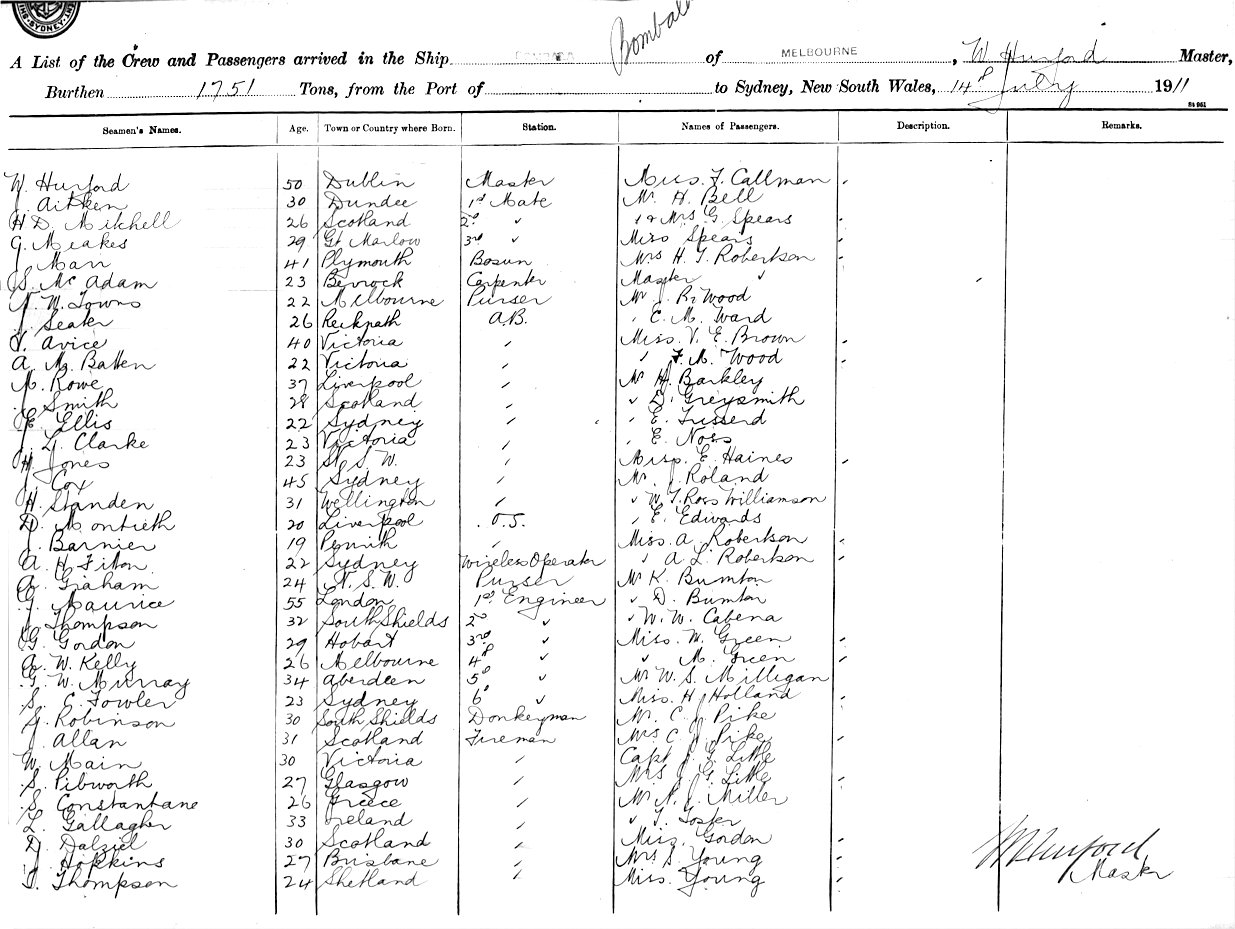 SYDNEY
Bombala
A List of the Crew and Passengers arrived in the Ship of MELBOURNE, W Hurford Master,
Burthen 1751 Tons, from the Port of to Sydney, New South Wales, 14th July 1911
Seamen's Names. Age. Town or Country where Born. Station. Names of Passengers. Description. Remarks.
W. Hurford 50 Dublin Master Miss F. Callman
J. Aitken 30 Dundee 1st Mate Mr H. Bell
H D. Mitchell 26 Scotland 2d " " & Mrs G. Spears
G. Meakes 29 Gt Marlow 3rd " Miss Spears
J. Marr 41 Plymouth Bosun Mrs H. T. Robertson
S. Mc Adam 23 Carpenter Master "
N. W. Towns 22 Melbourne Purser Mr J. R. Wood
J. Seater 26 A.B. " E. M. Ward
V. Avice 40 Victoria " Miss. V. E. Brown
A. Mc Batten 22 Victoria " " F. M. Wood
M. Rowe 37 Liverpool " Mr H. Barkley
J. Smith 28 Scotland " " D. Greysmith
E. Ellis 22 Sydney " " E.
J. G. Clarke 23 Victoria " " E.
H. Jones 23 N. S. W. " Miss. E. Haines
J. Cox 45 Sydney " Mr J. Roland
H. Standen 31 Wellington " " W. T. Ross Williamson
D. Montieth 20 Liverpool O.S. " E. Edwards
J. Barnier 19 Penrith " Miss. A. Robertson
A. H. Fitton 22 Sydney Wireless Operator " A. L. Robertson
A. Graham 24 N. S. W. Purser Mr K. Bumton
G. Maurice 55 London 1st Engineer " D. Bumton
J. Thompson 32 South Shields 2d " " W. W. Cabena
G. Gordon 29 Hobart 3rd " Miss. W. Green
A. W. Kelly 26 Melbourne 4th " " M. Green
G. W. Murray 34 Aberdeen 5th " Mr W. S. Milligan
S. E. Fowler 23 Sydney 6th " Miss. H. Holland
G. Robinson 30 South Shields Donkeyman Mr. C. J. Pike
J. Allan 31 Scotland Fireman Mrs C. J. Pike
W. Main 30 Victoria " Capt J. G. Little
S. Pibworth 27 Glasgow " Mrs J. G. Little
S. Constantane 26 Greece " Mr N. J. Miller
L. Gallagher 33 Ireland " " T. Foster
D. Dalziel 30 Scotland " Miss. Gordon
J. Hopkins 27 Brisbane " Mrs S. Young
T. Thompson 24 Shetland " Miss. Young
W Hurford
Master